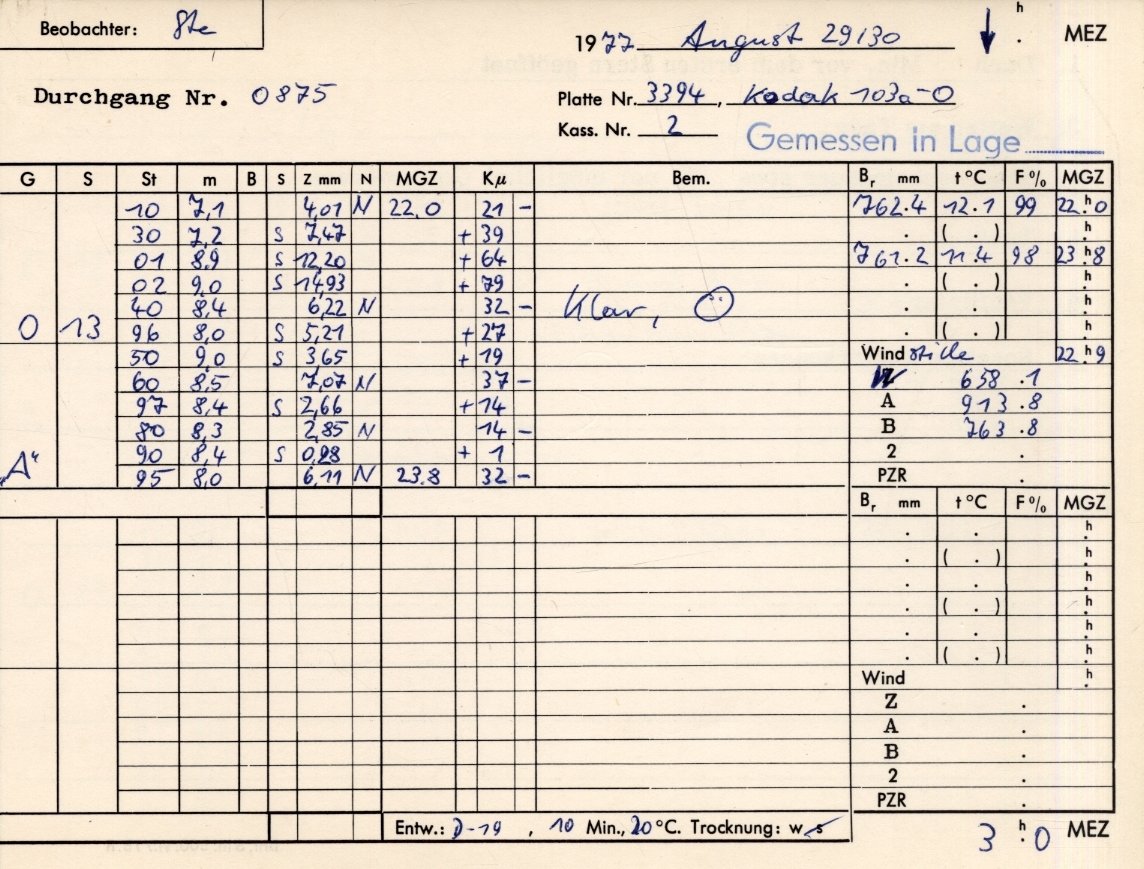 Beobachter: Ste
1977 August 29/30 h . MEZ
Durchgang Nr. 0875
Platte Nr. 3394, Kodak 103a-O
Kass. Nr. 2
Gemessen in Lage
G S St m B S Z mm N MGZ Kμ Bem. Br mm t °C F % MGZ
10 7,1 4,01 N 22,0 21 - 762.4 12.1 99 22 h 0
30 7,2 S 7,47 + 39 . ( . ) h
01 8,9 S 12,20 + 64 761.2 11.4 98 23 h 8
02 9,0 S 14,93 + 79 . ( . ) h
40 8,4 6,22 N 32 - Klar, . . h
O 13 96 8,0 S 5,21 + 27 . ( . ) h
50 9,0 S 3,65 + 19 Wind stille 22 h 9
60 8,5 7,07 N 37 - 658 .1
97 8,4 S 2,66 + 14 A 913 .8
80 8,3 2,85 N 14 - B 763 .8
90 8,4 S 0,28 + 1 2 .
"A" 95 8,0 6,11 N 23.8 32 - PZR .
Br mm t °C F % MGZ
. . h
. ( . ) h
. . h
. ( . ) h
. . h
. ( . ) h
Wind h
Z .
A .
B .
2 .
PZR .
Entw.: D-19, 10 Min., 20 °C. Trocknung: w s
3 h 0 MEZ